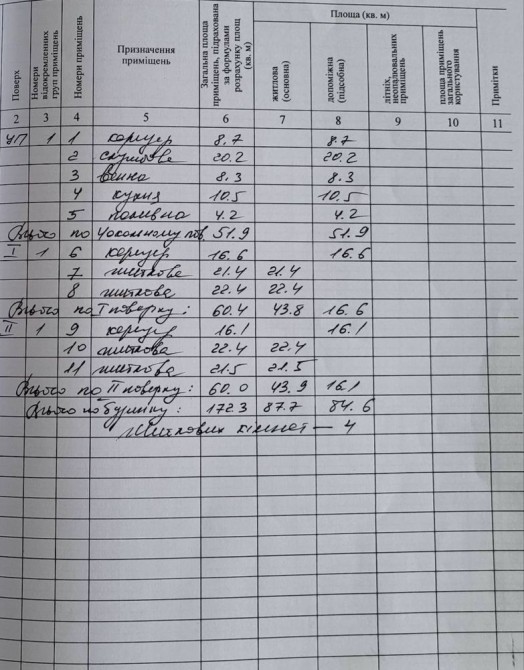 Поверх
Номери відокремлених груп приміщень
Номери приміщень
Призначення приміщень
Загальна площа приміщень, підрахована за формулами розрахунку площ (кв. м)
Площа (кв. м)
житлова (основна)
допоміжна (підсобна)
літніх, неопалювальних приміщень
площа приміщень загального користування
Примітки
2 3 4 5 6 7 8 9 10 11
1 1 коридор 8.7 8.7
2 20.2 20.2
3 8.3 8.3
4 кухня 10.5 10.5
5 4.2 4.2
Всього по цокольному пов. 51.9 51.9
I 1 6 коридор 16.6 16.6
7 житлова 21.4 21.4
8 житлова 22.4 22.4
Всього по I поверху: 60.4 43.8 16.6
II 1 9 коридор 16.1 16.1
10 житлова 22.4 22.4
11 житлова 21.5 21.5
Всього по II поверху: 60.0 43.9 16.1
Всього по будинку: 172.3 87.7 84.6
Житлових кімнат — 4